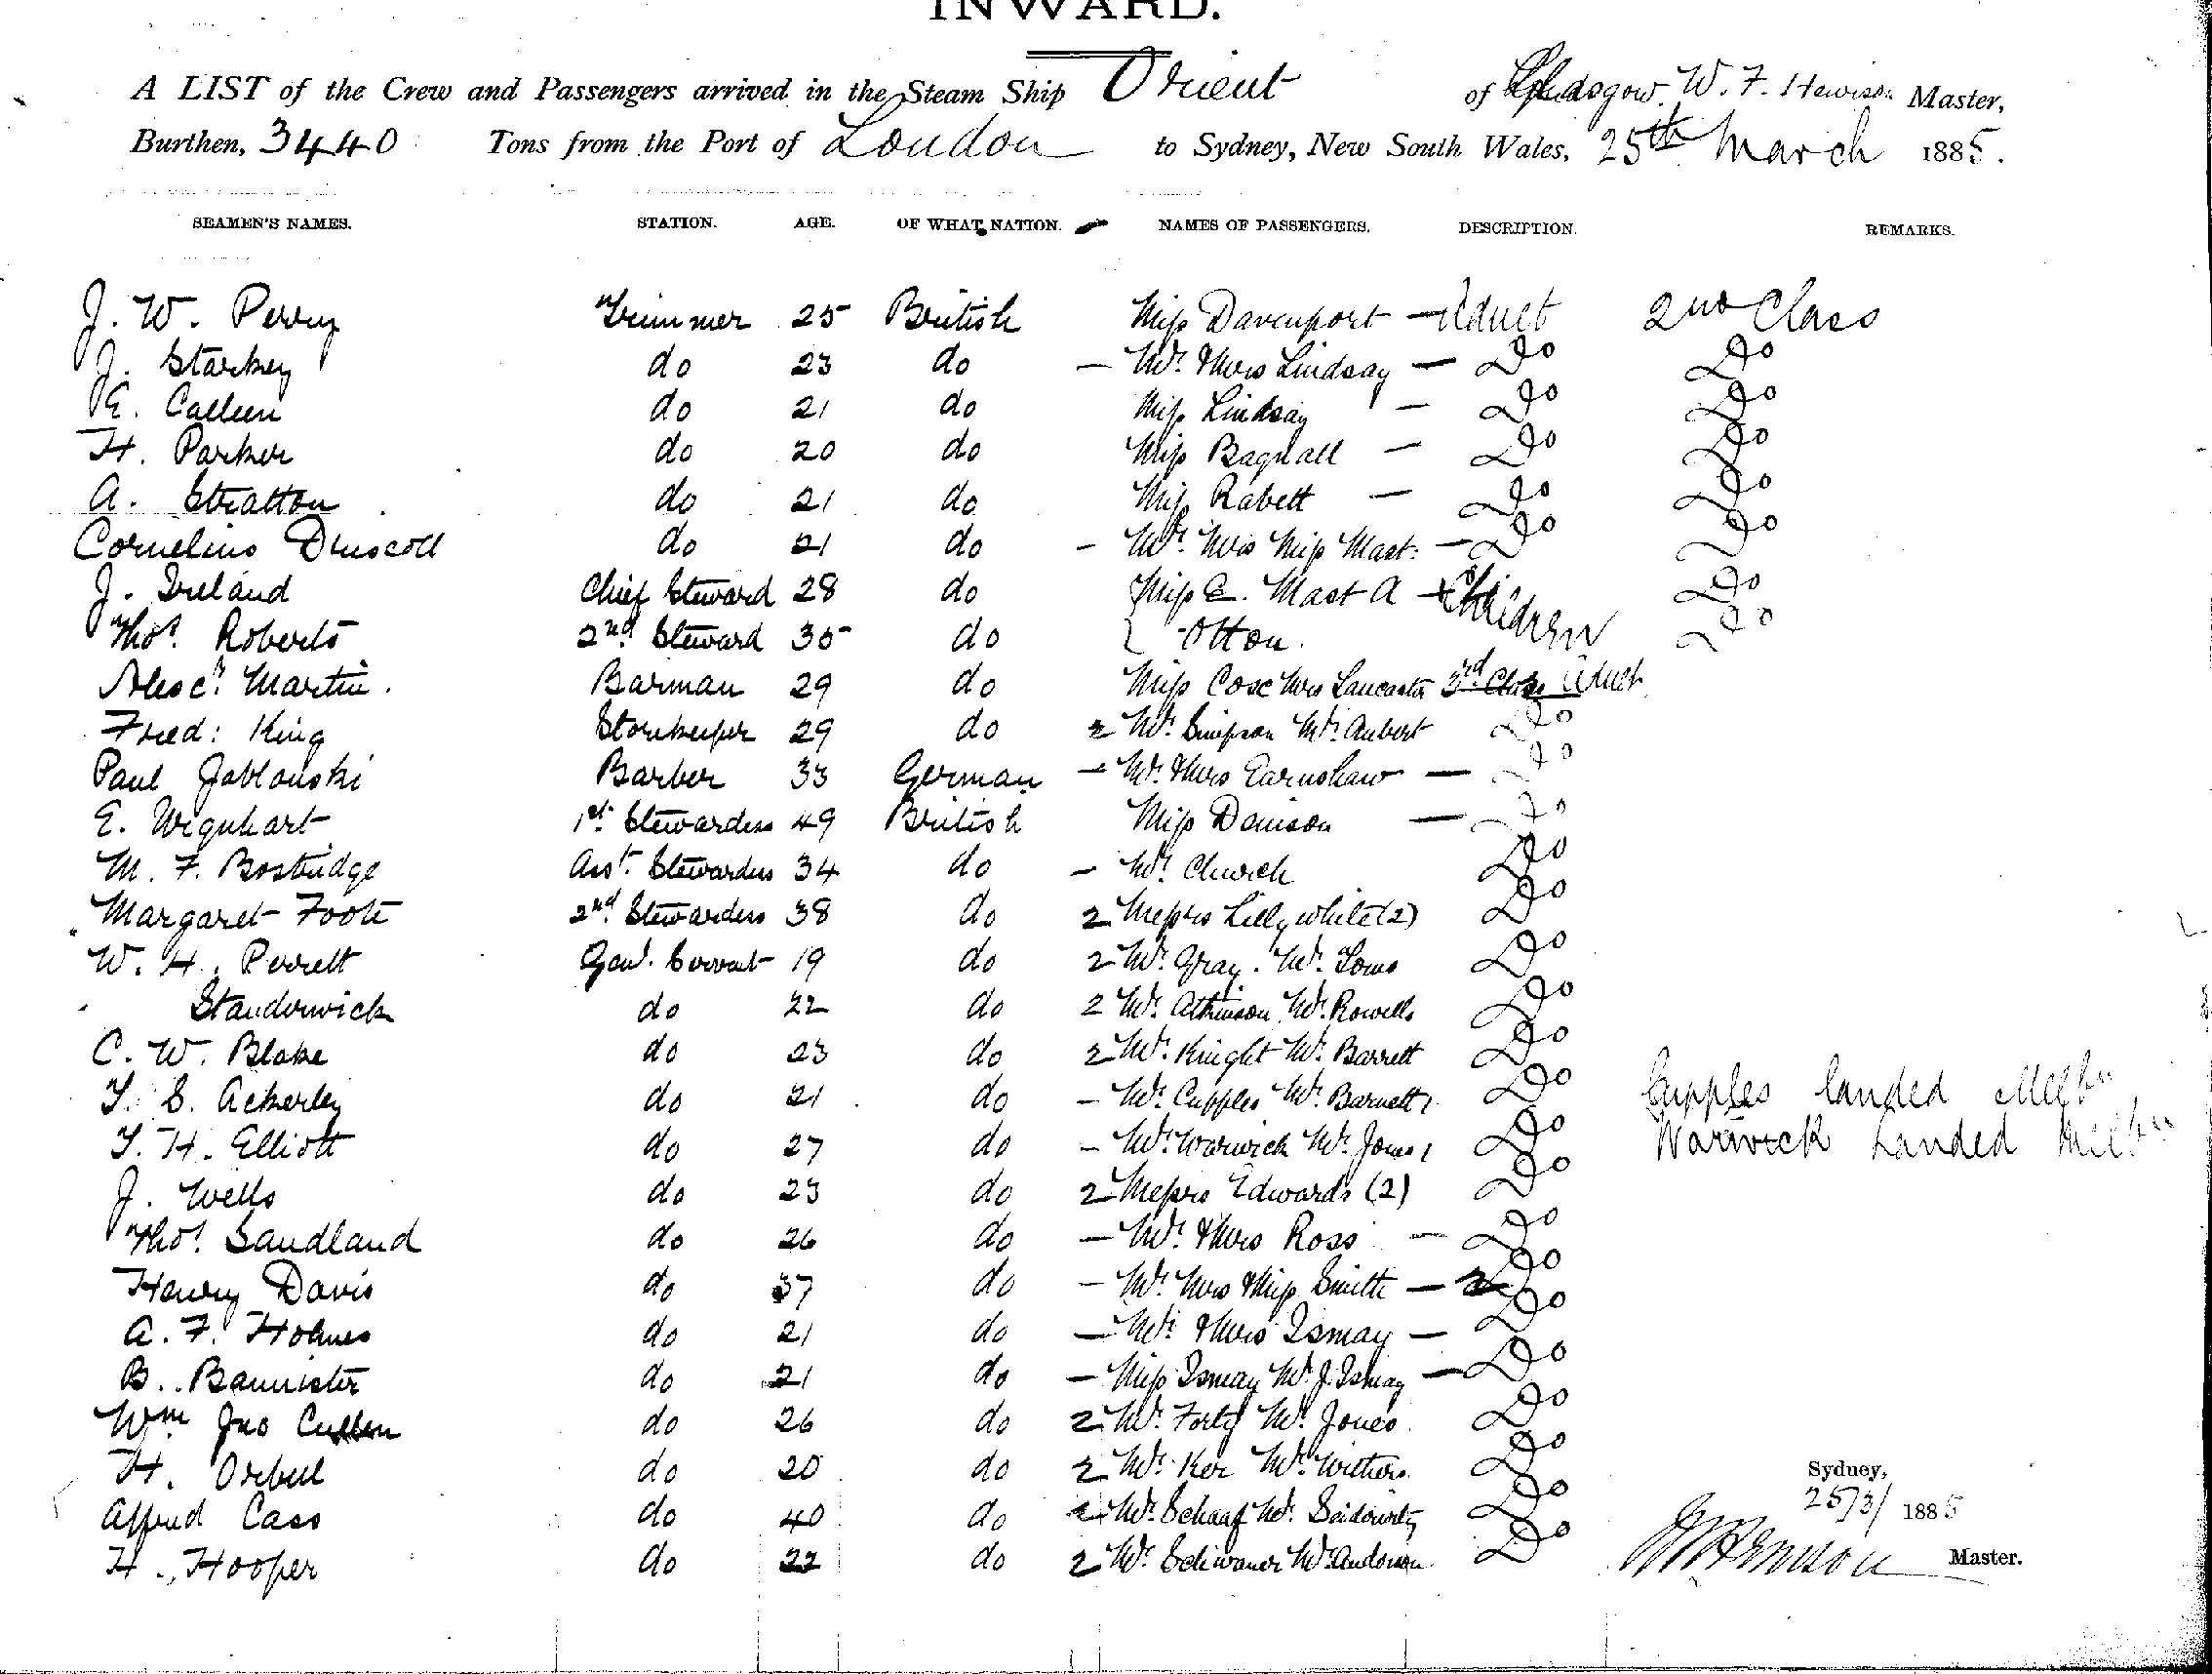 INWARD.
A LIST of the Crew and Passengers arrived in the Steam Ship Orient of Glasgow, W. F. Hewison Master,
Burthen, 3440 Tons from the Port of London to Sydney, New South Wales, 25th March 1885.
SEAMEN'S NAMES. STATION. AGE. OF WHAT NATION. NAMES OF PASSENGERS. DESCRIPTION. REMARKS.
J. W. Perry Trimmer 25 British Miss Davenport — Adult 2nd Class
J. Starkey do 23 do — Mr. & Mrs Lindsay — Do Do
E. Calleen do 21 do Miss Lindsay — Do Do
H. Parker do 20 do Miss Bagnall — Do Do
A. Stratton do 21 do Miss Rabett — Do Do
Cornelius Driscoll do 21 do — Mr. Mrs Miss Mast. — Do Do
J. Ireland Chief Steward 28 do Miss E. Mast A Children Do
Thos. Roberts 2nd Steward 35 do Otton. Do
Alexr. Martin. Barman 29 do Miss Cox Mrs Lancaster 3rd Class Adult
Fred: King Storekeeper 29 do 2 Mr. Simpson Mr. Aubert Do
Paul Jablonski Barber 33 German — Mr. & Mrs Earnshaw — Do
E. Urquhart 1st. Stewardess 49 British Miss Denison — Do
M. F. Bostridge Asst. Stewardess 34 do — Mr. Church Do
Margaret Foote 2nd Stewardess 38 do 2 Messrs Lillywhite (2) Do
W. H. Perrett Genl. Servant 19 do 2 Mr. Gray. Mr. Do
Standerwick do 22 do 2 Mr. Atkinson Mr. Rowells Do
C. W. Blake do 23 do 2 Mr. Knight Mr. Barrett Do
T. S. Ackerley do 21 do — Mr. Cupples Mr. Barnett 1 Do Cupples landed Melbn
T. H. Elliott do 27 do — Mr. Warwick Mr. Jones 1 Do Warwick Landed Melbn
J. Wells do 23 do 2 Messrs Edwards (2) Do
Thos. Sandland do 26 do — Mr. & Mrs Ross — Do
Henry Davis do 37 do — Mr. Mrs & Miss Smith — Do
A. F. Holmes do 21 do — Mr. & Mrs Ismay — Do
B. Bannister do 21 do — Miss Ismay Mr. J. Ismay — Do
Wm Jno Cullen do 26 do 2 Mr. Forty Mr. Jones. Do
H. Orbell do 20 do 2 Mr. Ker Mr. Withers. Do
Sydney,
Alfred Cass do 40 do 2 Mr. Schaaf Mr. Do 25/3/ 1885
H. Hooper do 22 do 2 Mr. Mr. Anderson. Do W F Hewison Master.